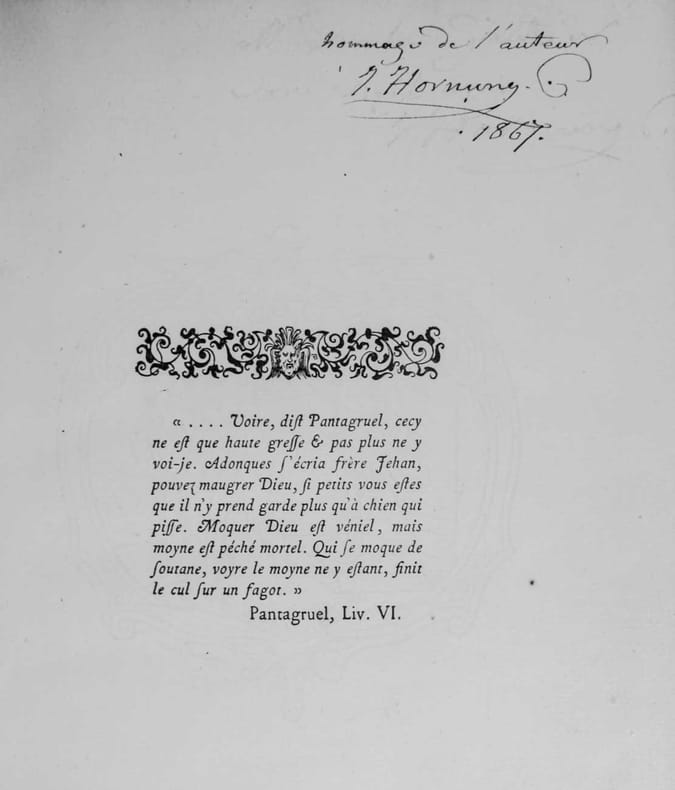 hommage de l'auteur
J. Hornung.
1867.
« . . . . Voire, diſt Pantagruel, cecy
ne eſt que haute greſſe & pas plus ne y
voi-je. Adonques ſ'écria frère Jehan,
pouvez maugrer Dieu, ſi petits vous eſtes
que il n'y prend garde plus qu'à chien qui
piſſe. Moquer Dieu eſt véniel, mais
moyne eſt péché mortel. Qui ſe moque de
ſoutane, voyre le moyne ne y eſtant, finit
le cul ſur un fagot. »
Pantagruel, Liv. VI.